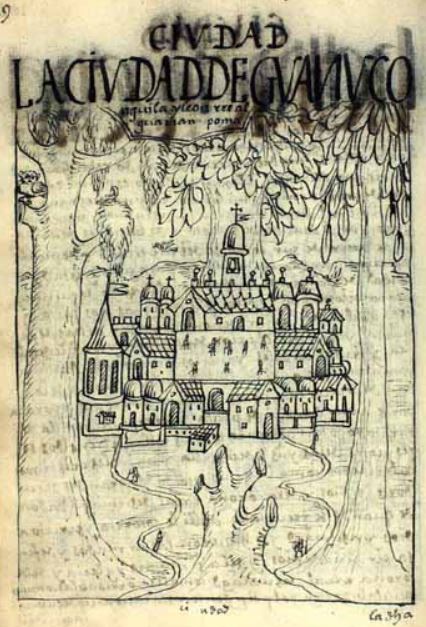 CIVDAD
LACIVDADDEGVANVCO
aguila ylcon rreal
guaman poma
ciudad
la dha